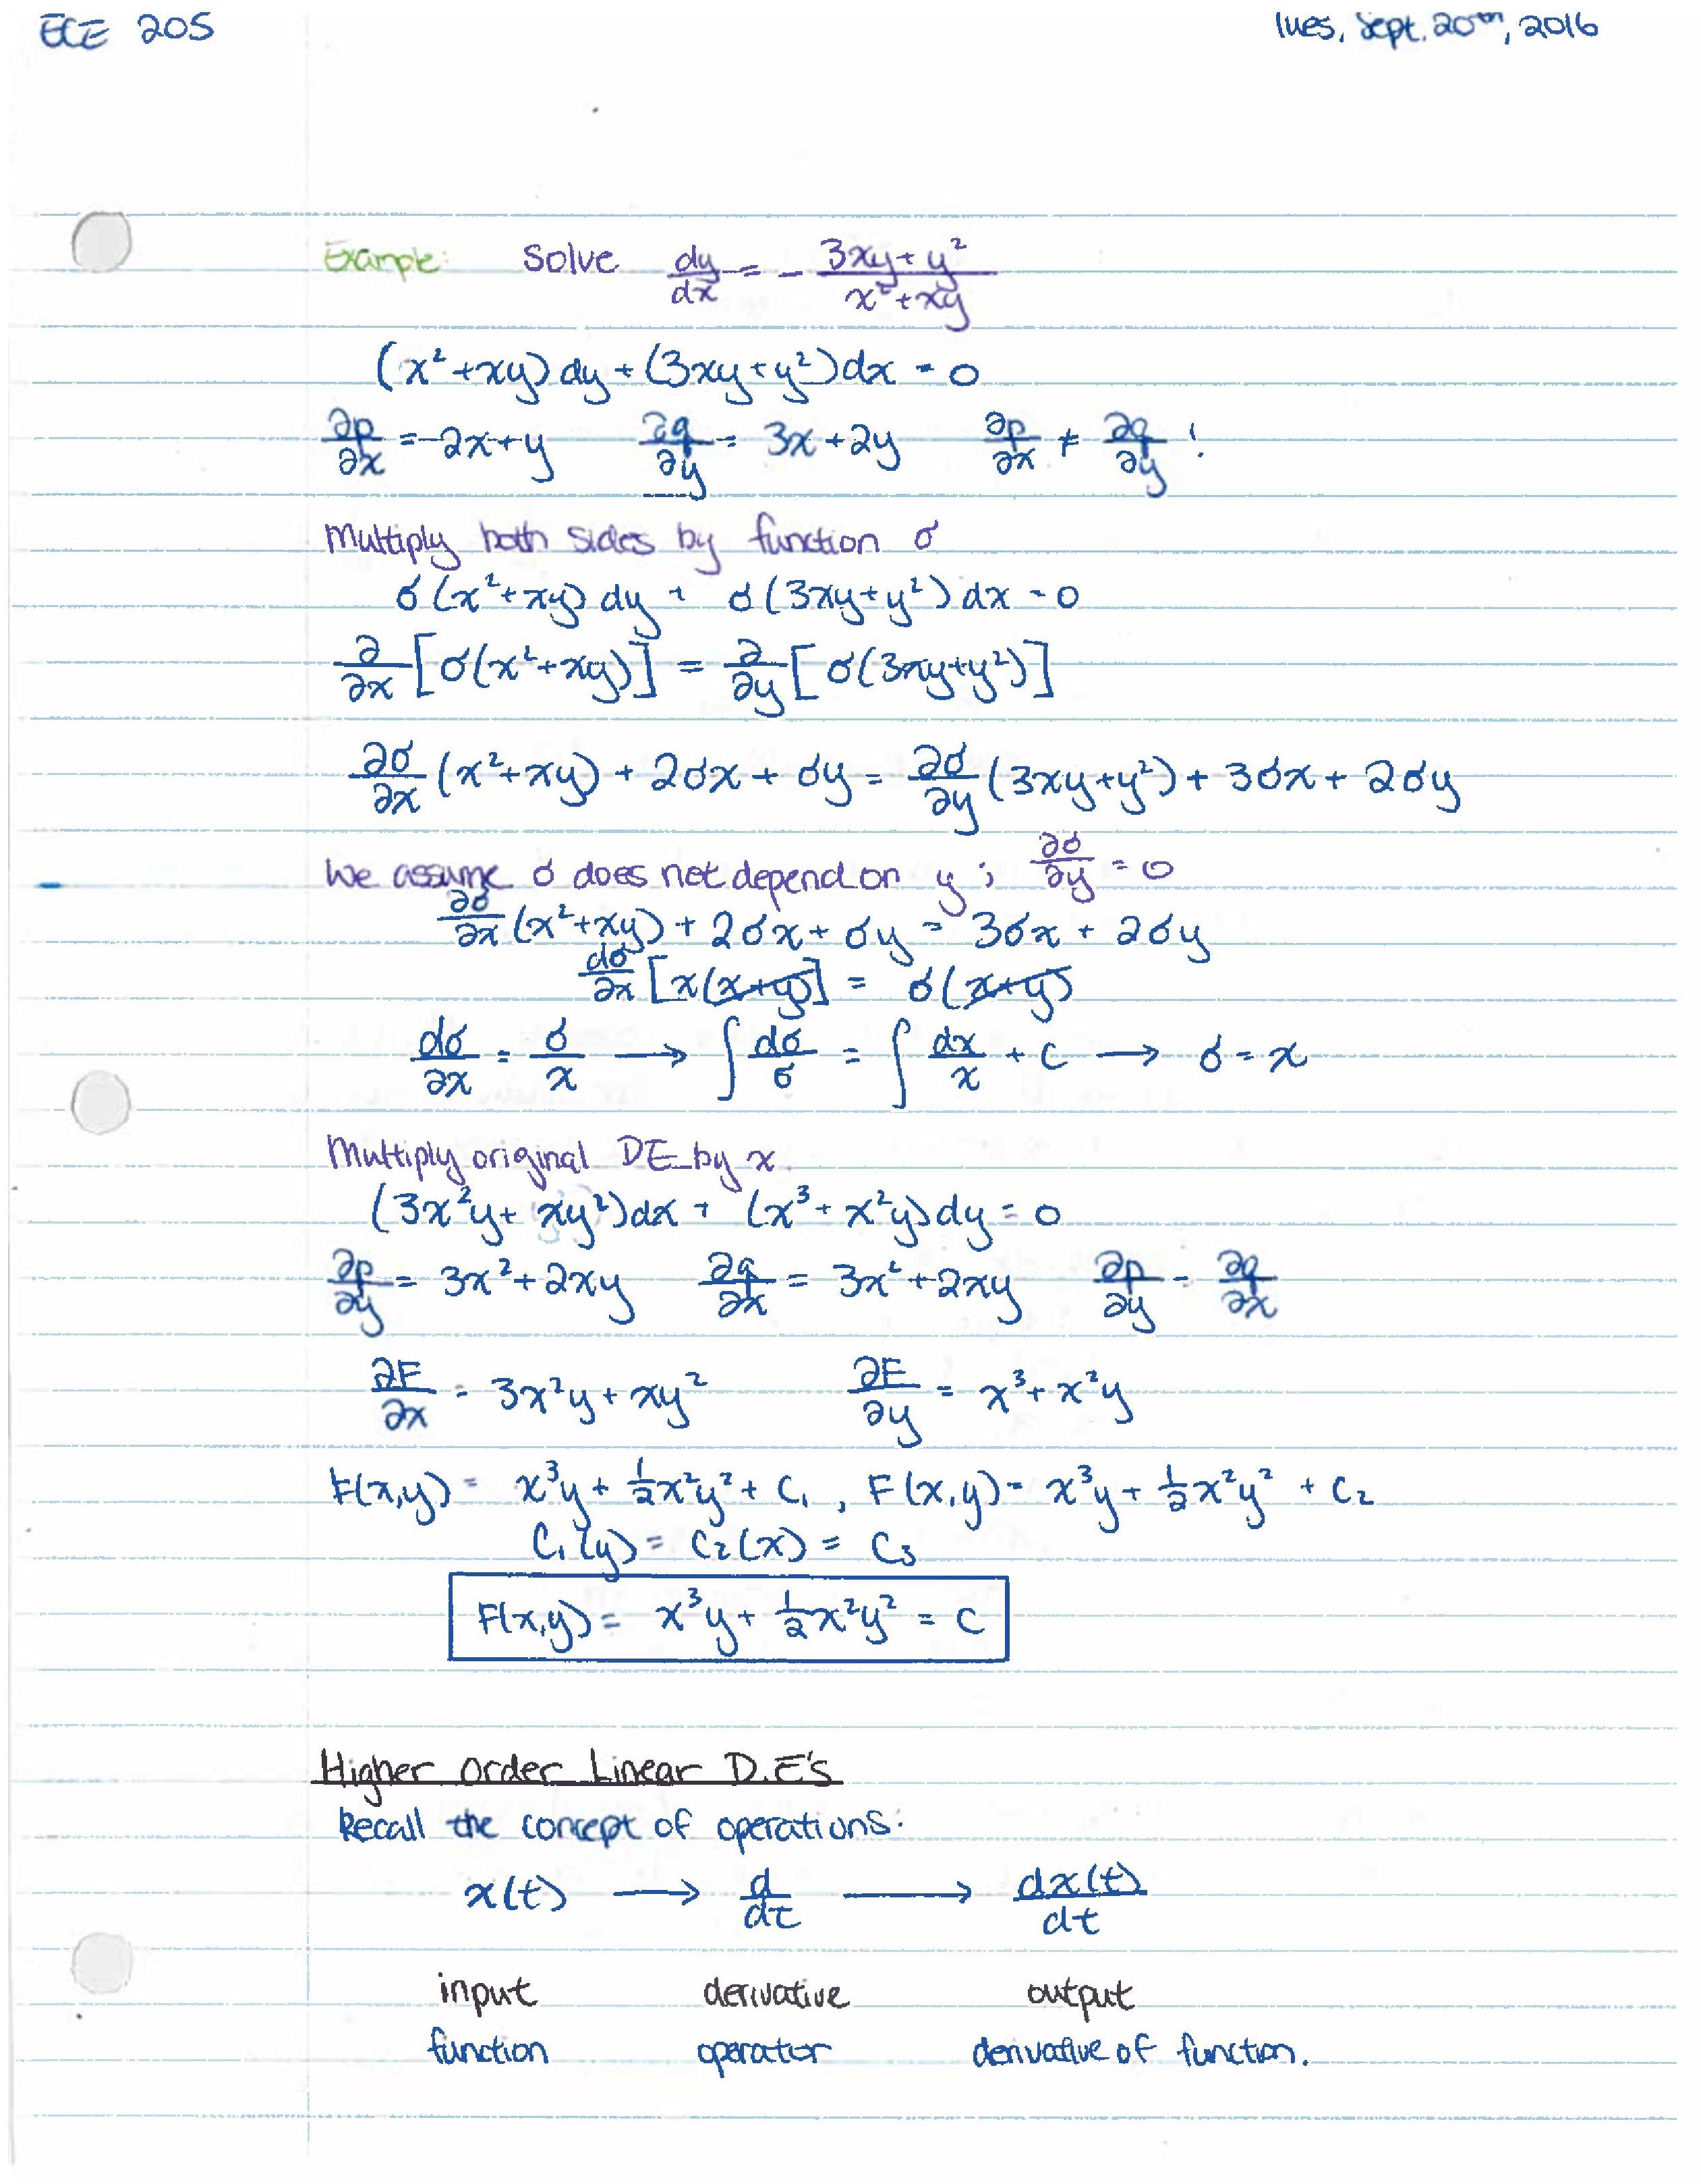 ECE 205
Tues, Sept. 20th, 2016
Example: Solve dy/dx = - (3xy + y²)/(x² + xy)
(x² + xy) dy + (3xy + y²) dx = 0
∂p/∂x = 2x + y   ∂q/∂y = 3x + 2y   ∂p/∂x ≠ ∂q/∂y !
Multiply both sides by function σ
σ(x² + xy) dy + σ(3xy + y²) dx = 0
∂/∂x [σ(x² + xy)] = ∂/∂y [σ(3xy + y²)]
∂σ/∂x (x² + xy) + 2σx + σy = ∂σ/∂y (3xy + y²) + 3σx + 2σy
We assume σ does not depend on y ; ∂σ/∂y = 0
∂σ/∂x (x² + xy) + 2σx + σy = 3σx + 2σy
dσ/∂x [x(x+y)] = σ(x+y)
dσ/∂x = σ/x → ∫ dσ/σ = ∫ dx/x + C → σ = x
Multiply original DE by x
(3x²y + xy²)dx + (x³ + x²y)dy = 0
∂p/∂y = 3x² + 2xy   ∂q/∂x = 3x² + 2xy   ∂p/∂y = ∂q/∂x
∂F/∂x = 3x²y + xy²   ∂F/∂y = x³ + x²y
F(x,y) = x³y + ½x²y² + C₁ , F(x,y) = x³y + ½x²y² + C₂
C₁(y) = C₂(x) = C₃
F(x,y) = x³y + ½x²y² = C
Higher Order Linear D.E's
Recall the concept of operations.
x(t) → d/dt → dx(t)/dt
input derivative output
function operator derivative of function.